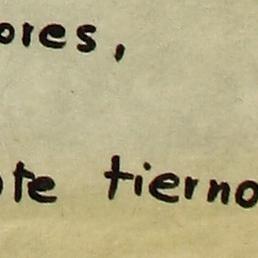 ores,
te tierno